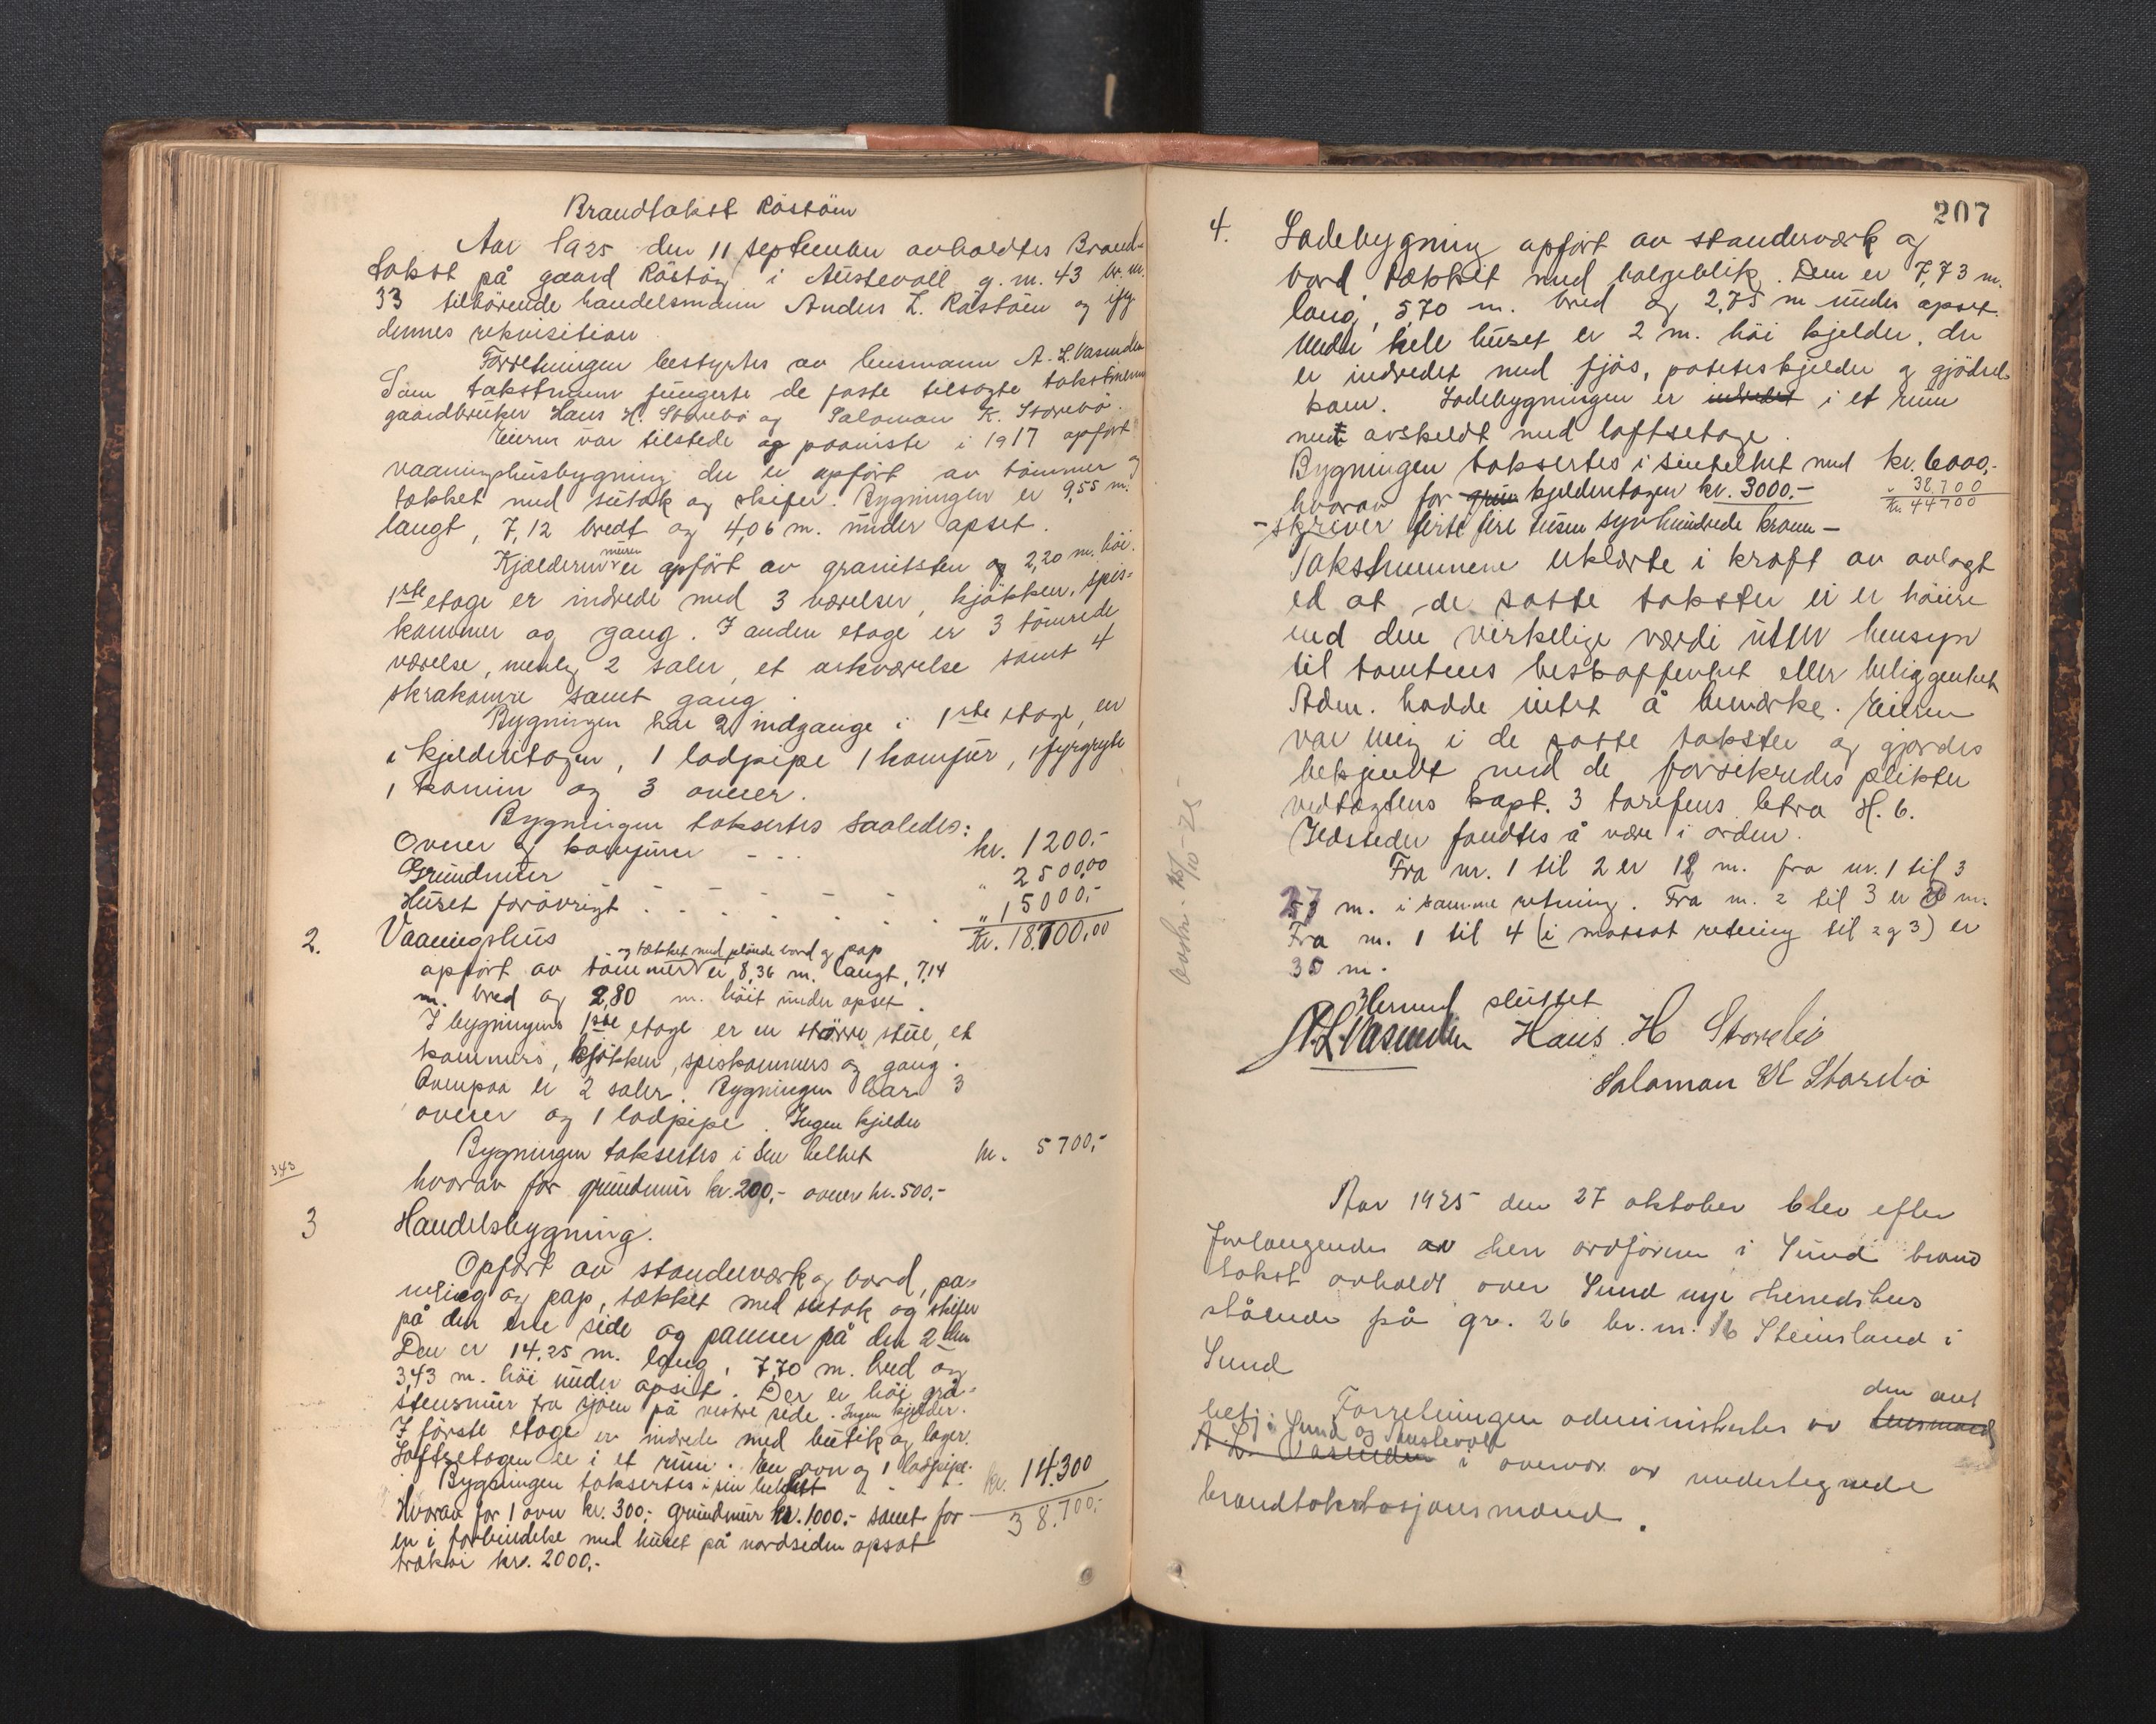 Brandtakst Röstöen
Aar 1925 den 11 september avholdtes Brand-
takst på gaard Röstöy i Austevoll g.m. 43 br. m.
33 tilhörende handelsmann Anders L. Röstöen og ifg.
dennes rekvisition
Forretningen bestyrtes av lensmann A. L. Vasenden
Som takstmenn fungerte de faste tilsagte takstmenn
gaardbruker Hans H. Storebö og Salomon K. Storebö.
Eieren var tilstede og paaviste i 1917 opfört
vaaningshusbygning der er opfört av tömmer og
tækket med sutak og skifer. Bygningen er 9,55 m.
langt, 7,12 bredt og 4,06 m. under opset.
Kjælderen muren er opfört av granitsten og 2,20 m. höi.
1ste etage er indrede med 3 værelser, kjökken, spis-
kammer og gang. I anden etage er 3 tömrede
værelse, nemlig 2 saler, et arkværelse samt 4
skrakamre samt gang.
Bygningen har 2 indgange i 1ste etage, en
i kjelderetagen, 1 lodpipe 1 komfur, 1 fyrgryte
1 kamin og 3 ovner.
Bygningen taksertes saaledes:
Ovner og komfurer - - - kr. 1200.-
Grundmur - - - " 2500,00
Huset forövrigt . . . " 15000,-
Kr. 18.700,00
2. Vaaningshus
og tækket med plöiede bord og pap
opfört av tömmer er 8,36 m. langt, 7,14
m. bred og 2,80 m. höit under opset.
I bygningens 1ste etage er en större stue, et
kammers, kjökken, spiskammers og gang.
Ovenpaa er 2 saler. Bygningen har 3
ovner og 1 lodpipe. Ingen kjelder
Bygningen taksertes i sin helhet kr. 5700,-
343
hvorav for grundmur kr. 200,- ovner kr. 500,-
3 Handelsbygning.
Opfört av standerværk og bord, pa-
neling og pap, tækket med sutak og skifer
på den ene side og panner på den 2den
Den er 14,25 m. lang, 7,70 m. bred og
3,43 m. höi under opset. Der er höi grå-
stensmur fra sjöen på vestre side. Ingen kjelder.
I förste etage er indrede med butik og lager.
Loftsetagen er i et rum. En ovn og 1 lodpipe.
Bygningen taksertes i sin helhet - kr. 14.300
Hvorav for 1 ovn kr. 300,- grundmur kr. 1000.- samt for
38.700,-
en i forbindelse med huset på nordsiden opsat
trakai kr. 2000,-
207
4. Ladebygning opfört av standerværk og
bord tækket med bølgeblik. Den er 7,73 m.
lang, 5,70 m. bred og 2,75 m under opset.
Under hele huset er 2 m. höi kjelder, der
er indredet med fjös, potetkjelder og gjödsel-
kom. Ladebygningen er indredet i et rum
med avskeldt med loftsetage.
Bygningen taksertes i sin helhet med kr. 6000,-
hvorav for grun kjelderetagen kr. 3000.-
" 38.700
Kr. 44700
- skriver firti fire tusen syv hundrede kroner -
Takstmennene erklærte i kraft av avlagt
ed at de satte takster ei er höiere
end den virkelige værdi uten hensyn
til tomtens beskaffenhet eller beliggenhet
Adm. hadde intet å bemærke. Eieren
var enig i de satte takster og gjordes
bekjendt med de forsikredes plikter
vedtægtens kapt. 3 tarifens letra H. 6.
Ildsteder fandtes å være i orden.
Fra nr. 1 til 2 er 12 m. fra nr. 1 til 3
27 m. i samme retning. Fra nr. 2 til 3 er m.
Fra nr. 1 til 4 (i motsat retning til 2 og 3) er
35 m.
Hermed sluttet
A. L. Vasenden Hans H Storebö
Salomon K Storebö
Avskr. 15/10-25
Aar 1925 den 27 oktober blev efter
forlangende av herr ordförer i Sund brand
takst avholdt over Sund nye herredshus
stående på gr. 26 br. nr. 16 Steinsland i
Sund
Forretningen administrertes av lensmand
den aut
betj. i Sund og Austevoll
A. L. Vasenden i overvær av undertegnede
brandtakstasjonsmænd.